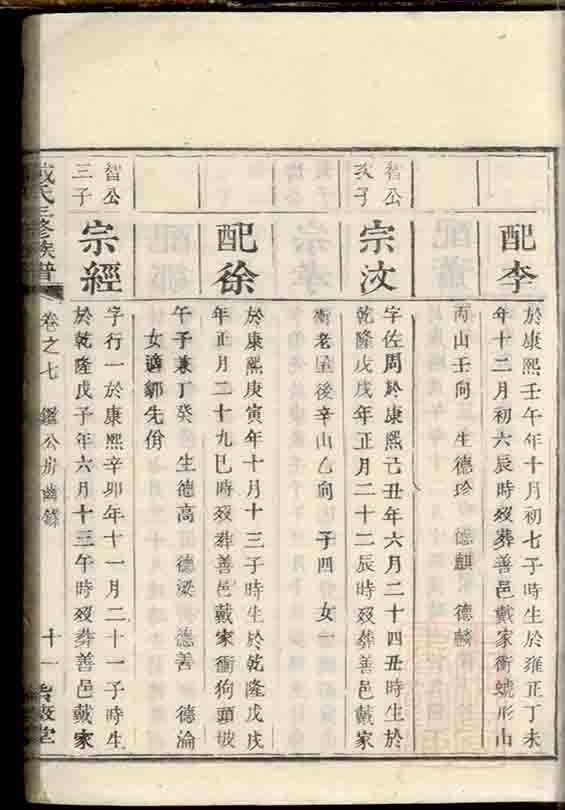 配李
於康熙壬午年十月初七子時生於雍正丁未
年十二月初六辰時歿葬善邑戴家衝蜣形山
丙山壬向 生德珍 德麒 德麟
智公
次子
宗汶
字佐周於康熙己丑年六月二十四丑時生於
乾隆戊戌年正月二十二辰時歿葬善邑戴家
衝老屋後辛山乙向 子四 女一
配徐
於康熙庚寅年十月十三子時生於乾隆戊戌
年正月二十九巳時歿葬善邑戴家衝狗頭坡
午子兼丁癸 生德高 德梁 德善 德淪
女適鄒先佾
智公
三子
宗經
字行一於康熙辛卯年十一月二十一子時生
於乾隆戊子年六月十三午時歿葬善邑戴家
氏三修族譜
卷之七 鑑公房齒錄 十一 堂